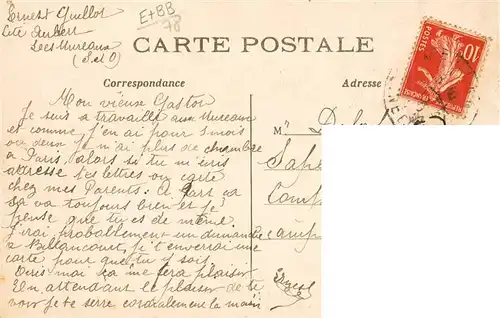 Ernest Guillot
Cité Aubert
Les Mureaux
(S.et O)
E+BB
78
CARTE POSTALE
Correspondance
Adresse
POSTES
10
Mon vieux Gaston
Je suis à travailler aux Mureaux
et comme j'en ai pour 1 mois
ou deux je n'ai plus de chambre
à Paris, alors si tu m'écris
adresse tes lettres ou carte
chez mes Parents. A part ça
sa va toujours bien et je
pense que tu es de même.
J'irai probablement un dimanche
à Billancourt, je t'enverrai une
carte pour que tu y sois
Ecris moi ça me fera plaisir
En attendant le plaisir de te
voir je te serre cordialement la main
Ernest
M
Sape
Comp
camp